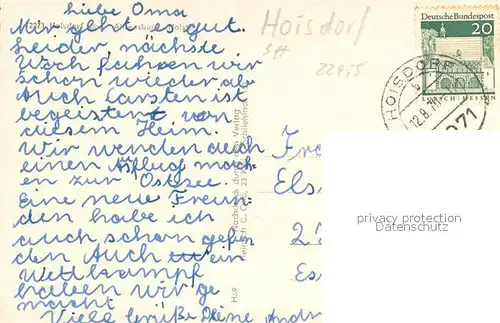 liebe Oma
Mir geht es gut.
Leider nächste
Woch fahren wir
schon wieder ab
Auch Carsten ist
begeistert von
diesem Heim.
Wir werden auch
einen Ausflug mach
en zur Ostsee.
Eine neue Freun-
din habe ich
auch schon gefun
den Auch ein
Wettkampf
haben wir ge
macht
Viele Grüße Deine Andr
Hoisdorf
SH
22955
Deutsche Bundespost
20
LORSCH/HESSEN
HOISDORF
12.8.
2071
Fra
Els
Es
H 89
privacy protection
Datenschutz